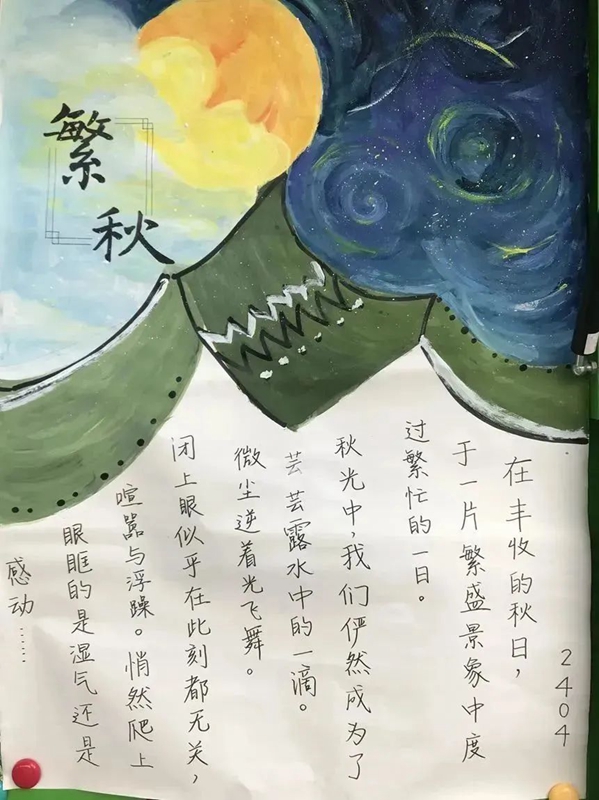 繁
秋
2404
在丰收的秋日，
于一片繁盛景象中度
过繁忙的一日。
秋光中，我们俨然成为了
芸芸露水中的一滴。
微尘逆着光飞舞。
闭上眼似乎在此刻都无关，
喧嚣与浮躁。悄然爬上
眼眶的是湿气还是
感动……